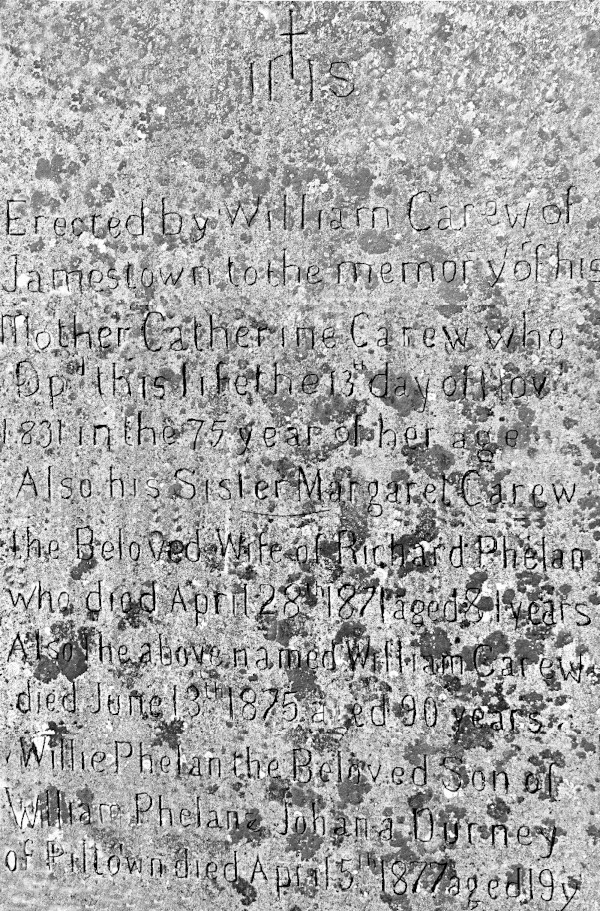 IHS
Erected by William Carew of
Jamestown to the memory of his
Mother Catherine Carew who
Dpd this life the 13th day of Novr
1831 in the 75 year of her age
Also his Sister Margaret Carew
the Beloved Wife of Richard Phelan
who died April 28th 1871 aged 81 years
Also The above named William Carew
died June 13th 1875 aged 90 years
Willie Phelan the Beloved Son of
William Phelan & Johana Durney
of Piltown died April 5th 1877 aged 19y